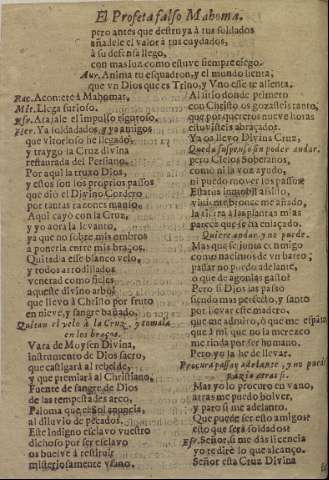 El Profeta falso Mahoma.
pero antes que destruya à tus soldados
añadele el valor à tus cuydados,
à su defensa llego,
con mas luz como estuve siempre ciego.
Aur. Anima tu esquadron, y el mundo sienta,
que vn Dios que es Trino, y Vno esse te alienta.
Rac. Acomete à Mahoma.
Mit. Llega furioso.
Ataja le el impulso
Ya soldados, y yo amigos
que vitorioso he llegado,
y traygo la Cruz divina
restaurada del Persiano.
Por aqui la truxo Dios,
y estos son los propios passos
que diò el Divino Cordero
por tantas razones manso.
Aqui cayò con la Cruz,
y yo aora la levanto,
ya que no sobre mis ombros
a ponerla entre mis braços.
Quitad a esse blanco velo,
y todos arrodillados
venerad como fieles
aqueste divino arbol
que llevò à Christo por fruto
en nieve, y sangre bañado.
Quitan el velo à la Cruz, y tomala
en los braços.
Vara de Moysen Divina,
instrumento de Dios sacro,
que castigarà al rebelde,
y que premiarà al Christiano,
Fuente de sangre de Dios
de las tempestades arco,
Paloma que el Sol anuncia
al diluvio de pecados,
Este indigno esclavo vuestro
dichoso por ser esclavo
os buelve à restituir
misteriosamente vfano.
Al sitio donde primero
con Christo os gozasteis tanto,
que por quereros nueve horas
estuvisteis abraçados.
Ya os llevo Divina Cruz,
Queda suspenso sin poder andar.
pero Cielos Soberanos,
como ni la voz ayudo,
ni puedo mover los passos?
Estatua inmobil assisto,
la tierra à las plantas mias
parece que se ha enlaçado.
Quiere andar, y no puede.
Mas que se junta conmigo
como nacimos de vn barro;
passar no puedo adelante,
o que de agonias gasto!
Pero si Dios las passò
siendo mas perfecto, y santo
por llevar este madero,
que me admiro, ò que me espanto
que à mi que no la merezco
me rinda por ser humano.
Pero yo la he de llevar.
Procura passar adelante, y no puede
Mas yo lo procuro en vano,
atras me puedo bolver,
y paro si me adelanto.
Que puede ser esto amigos?
esto que serà soldados?
Señor, si me das licencia
yo te dirè lo que alcanço.
Señor esta Cruz Divina